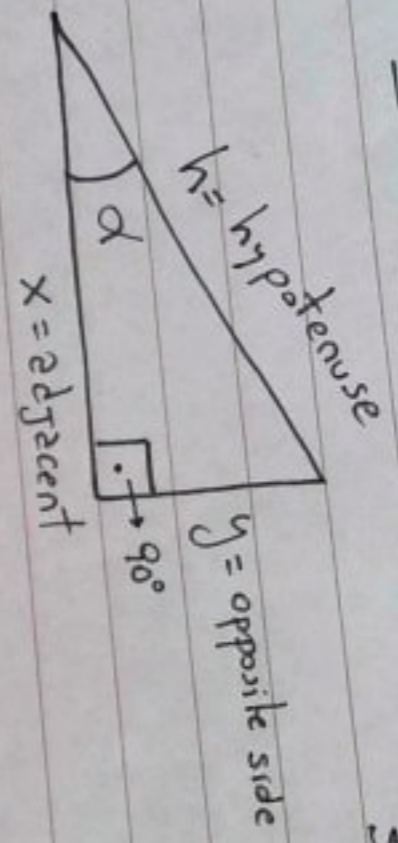 h= hypotenuse
α
x = adjacent
90°
y = opposite side